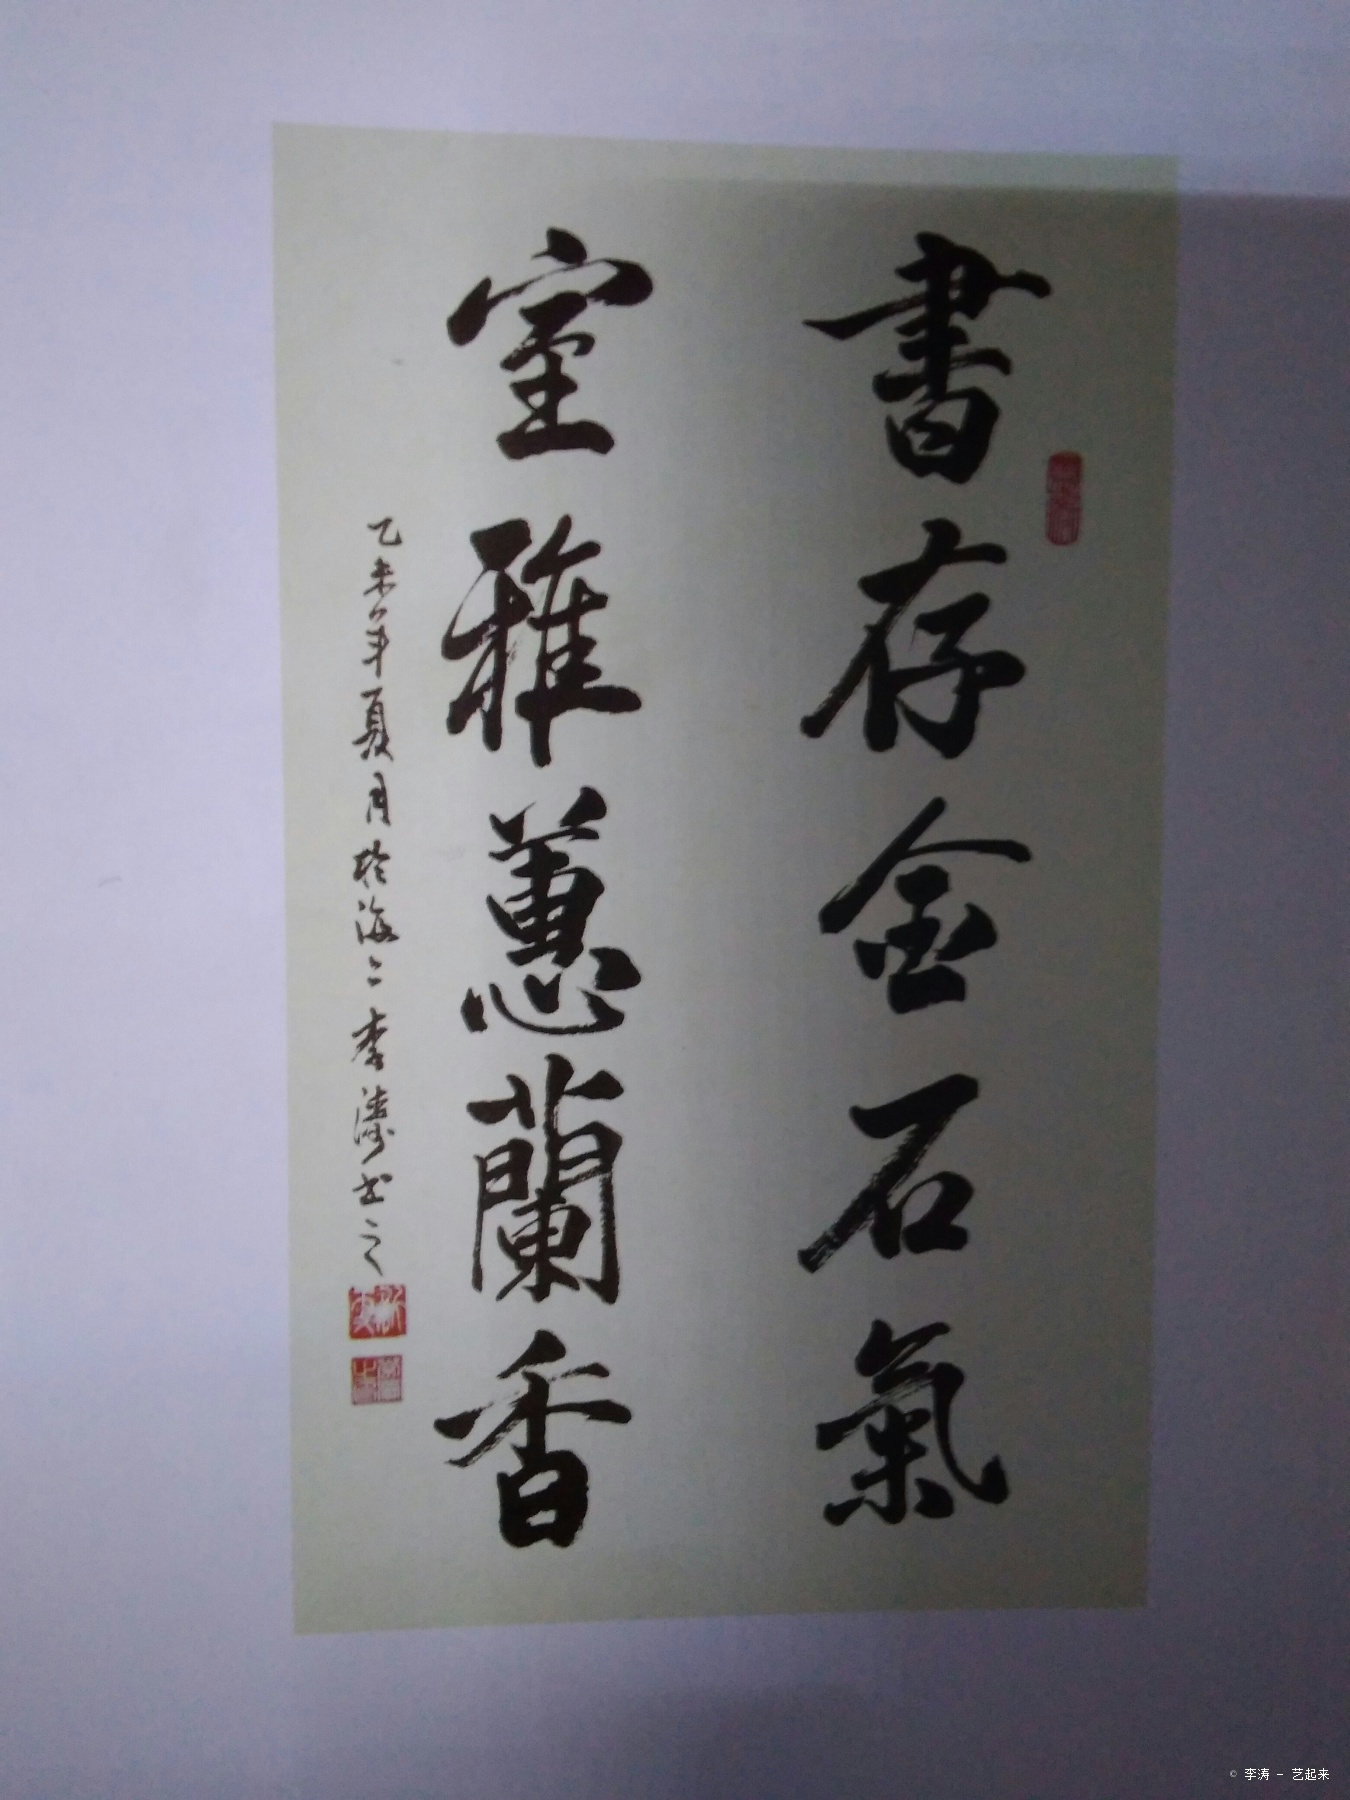 書存金石氣
室雅蕙蘭香
乙未年夏月於海上李濤书之
© 李涛 - 艺起来